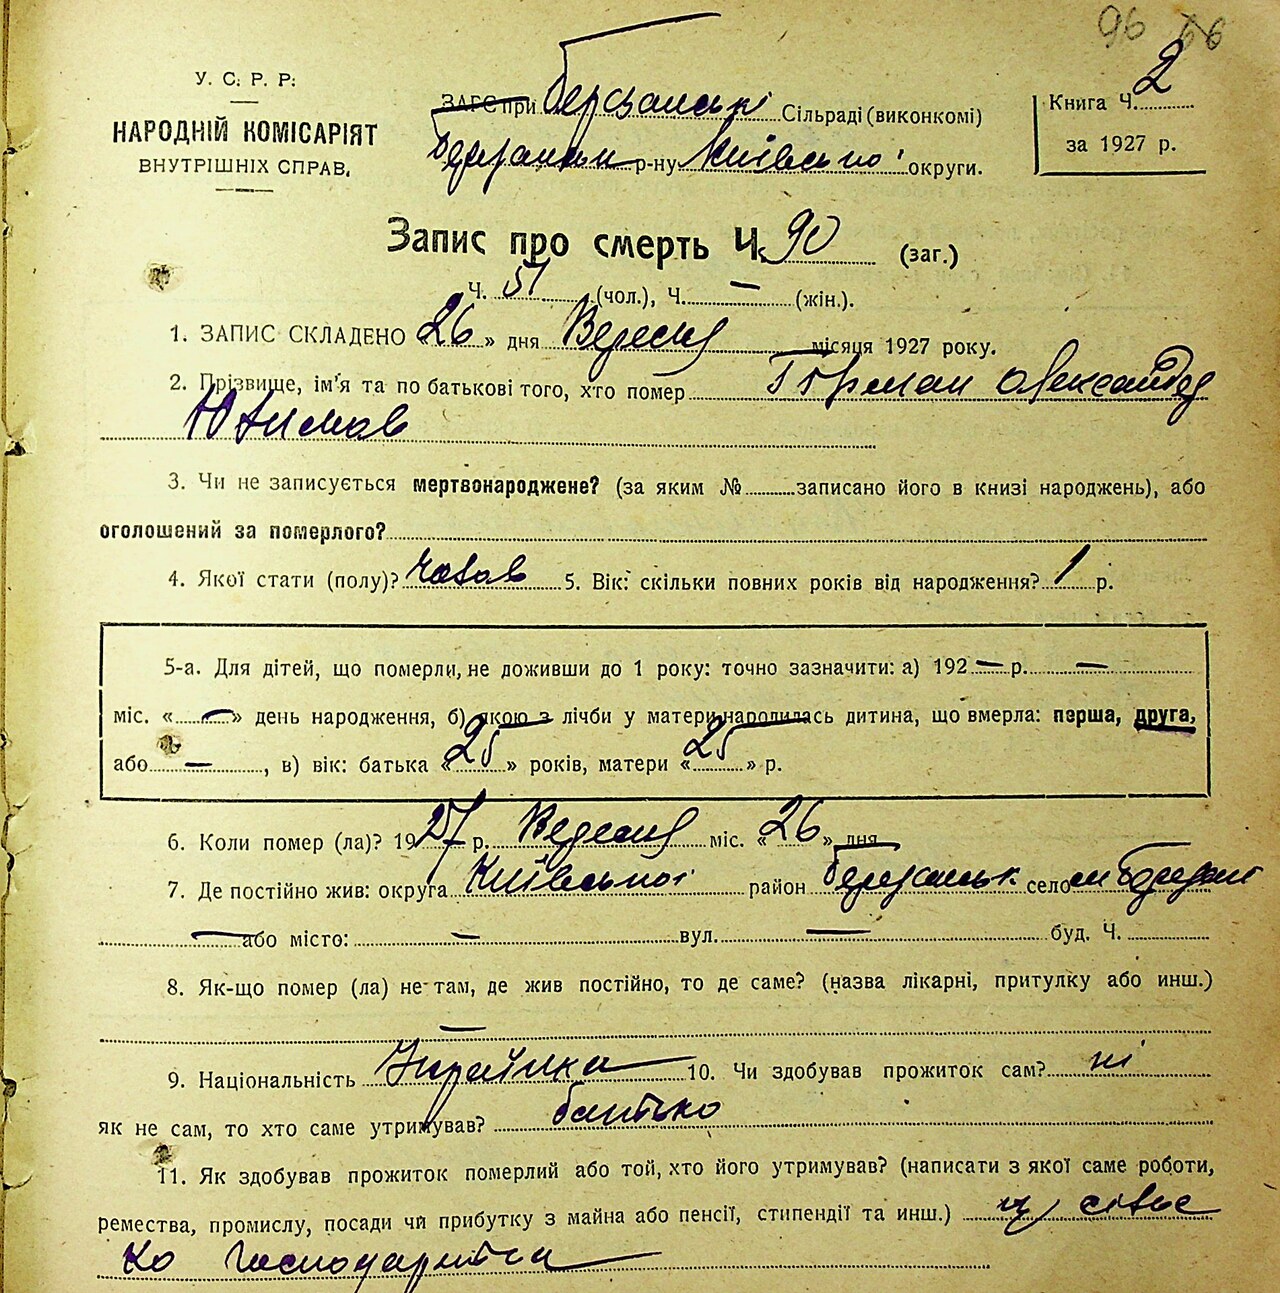 96 66
У. С. Р. Р.
НАРОДНІЙ КОМІСАРІЯТ
ВНУТРІШНІХ СПРАВ.
ЗАГС при Березанські Сільраді (виконкомі)
р-ну Київської округи.
Книга Ч. 2
за 1927 р.
Запис про смерть Ч. 90 (заг.)
Ч. 51 (чол.), Ч. — (жін.).
1. ЗАПИС СКЛАДЕНО «26» дня Вересня місяця 1927 року.
2. Прізвище, ім'я та по батькові того, хто помер Герман Олександер
Юхимов
3. Чи не записується мертвонароджене? (за яким № записано його в книзі народжень), або
оголошений за померлого?
4. Якої стати (полу)? чолов 5. Вік: скільки повних років від народження? 1 р.
5-а. Для дітей, що померли, не доживши до 1 року: точно зазначити: а) 192 — р. —
міс. « — » день народження, б) якою з лічби у матери народилась дитина, що вмерла: перша, друга,
або — , в) вік: батька «25» років, матери «25» р.
6. Коли помер (ла)? 1927 р. Вересня міс. «26» дня
7. Де постійно жив: округа Київської район Березанськ село м Березані
— або місто: — вул. — буд. Ч.
8. Як-що помер (ла) не там, де жив постійно, то де саме? (назва лікарні, притулку або инш.)
—
9. Національність Українка 10. Чи здобував прожиток сам? ні
як не сам, то хто саме утримував? батько
11. Як здобував прожиток померлий або той, хто його утримував? (написати з якої саме роботи,
ремества, промислу, посади чи прибутку з майна або пенсії, стипендії та инш.) із сільс
ко господарства